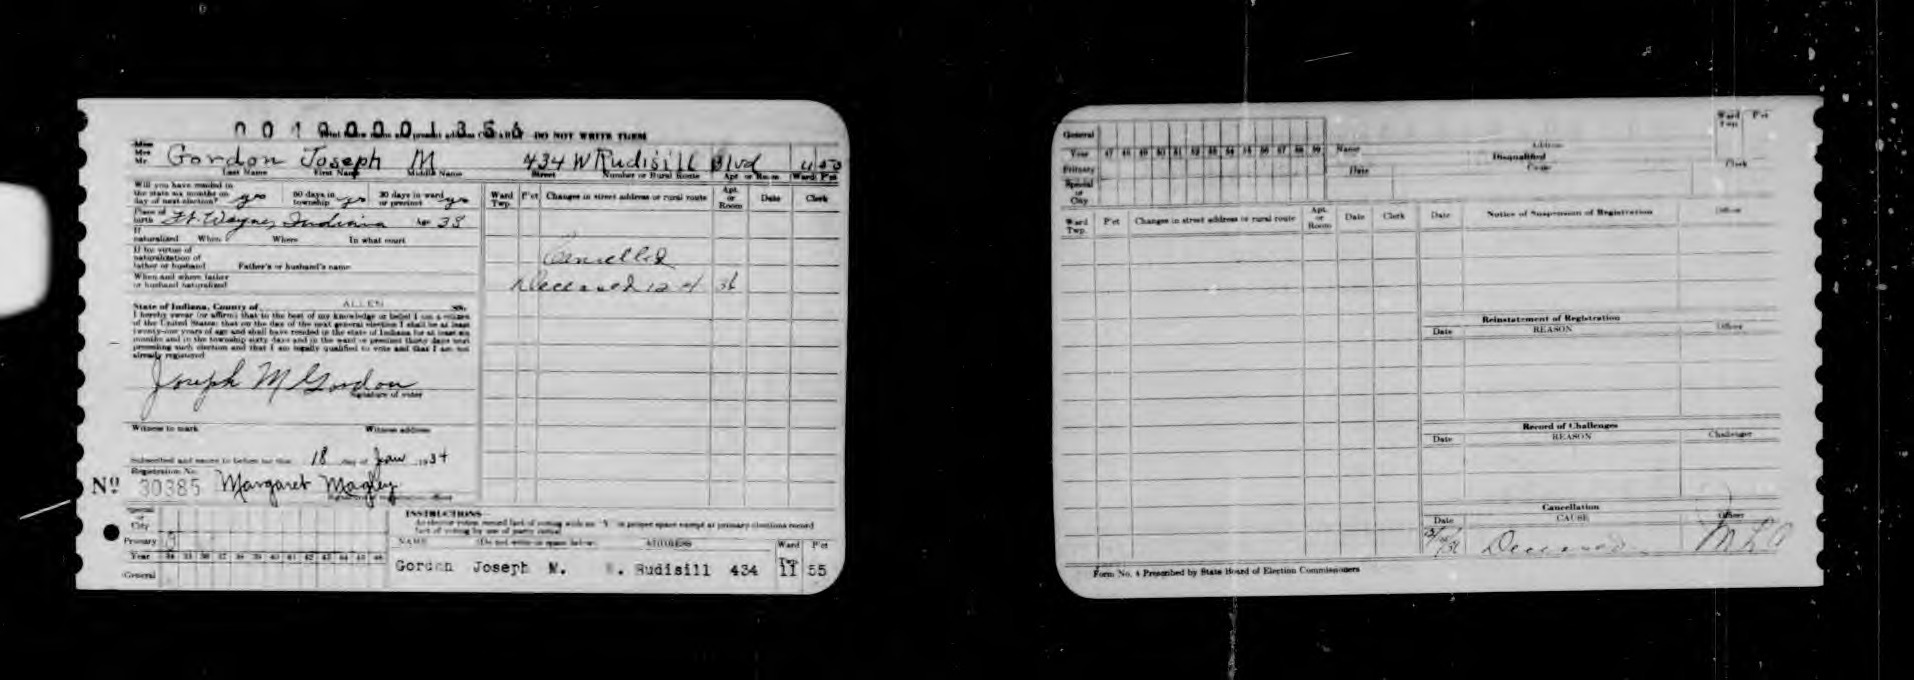 0010000135
DO NOT WRITE THEM
Miss
Mrs
Mr. Gordon Joseph M 434 W Rudisill Blvd
Last Name First Name Middle Name Street Number or Rural Route Apt. or Room Ward P'ct
Will you have resided in
the state six months on
day of next election? yes 60 days in township yes 30 days in ward or precinct yes
Place of birth Ft. Wayne, Indiana Age 38
If
naturalized When Where In what court
If by virtue of
naturalization of
father or husband Father's or husband's name
When and where father
or husband naturalized
State of Indiana, County of ALLEN ss.
I hereby swear (or affirm) that to the best of my knowledge or belief I am a citizen
of the United States; that on the day of the next general election I shall be at least
twenty-one years of age and shall have resided in the state of Indiana for at least six
months and in the township sixty days and in the ward or precinct thirty days next
preceding such election and that I am legally qualified to vote and that I am not
already registered
Joseph M Gordon
Signature of voter
Witness to mark Witness address
Subscribed and sworn to before me this 18 day of Jan 1934
Registration No.
Nº 30385 Margaret Magley
Ward Twp. P'ct Changes in street address or rural route Apt. or Room Date Clerk
Cancelled
Deceased 12-4 36
Special
or
City
Primary
Year 34 35 36 37 38 39 40 41 42 43 44 45 46
General
INSTRUCTIONS
NAME (Do not write in space below) ADDRESS Ward Twp. P'ct
Gordon Joseph M. W. Rudisill 434 11 55
General
Year 47 48 49 50 51 52 53 54 55 56 57 58 59
Primary
Special
or
City
Name Address Ward Twp. P'ct
Disqualified
Date Cause Clerk
Ward Twp. P'ct Changes in street address or rural route Apt. or Room Date Clerk
Date Notice of Suspension of Registration Officer
Reinstatement of Registration
Date REASON Officer
Record of Challenges
Date REASON Challenger
Cancellation
Date CAUSE Officer
Deceased
Form No. 4 Prescribed by State Board of Election Commissioners